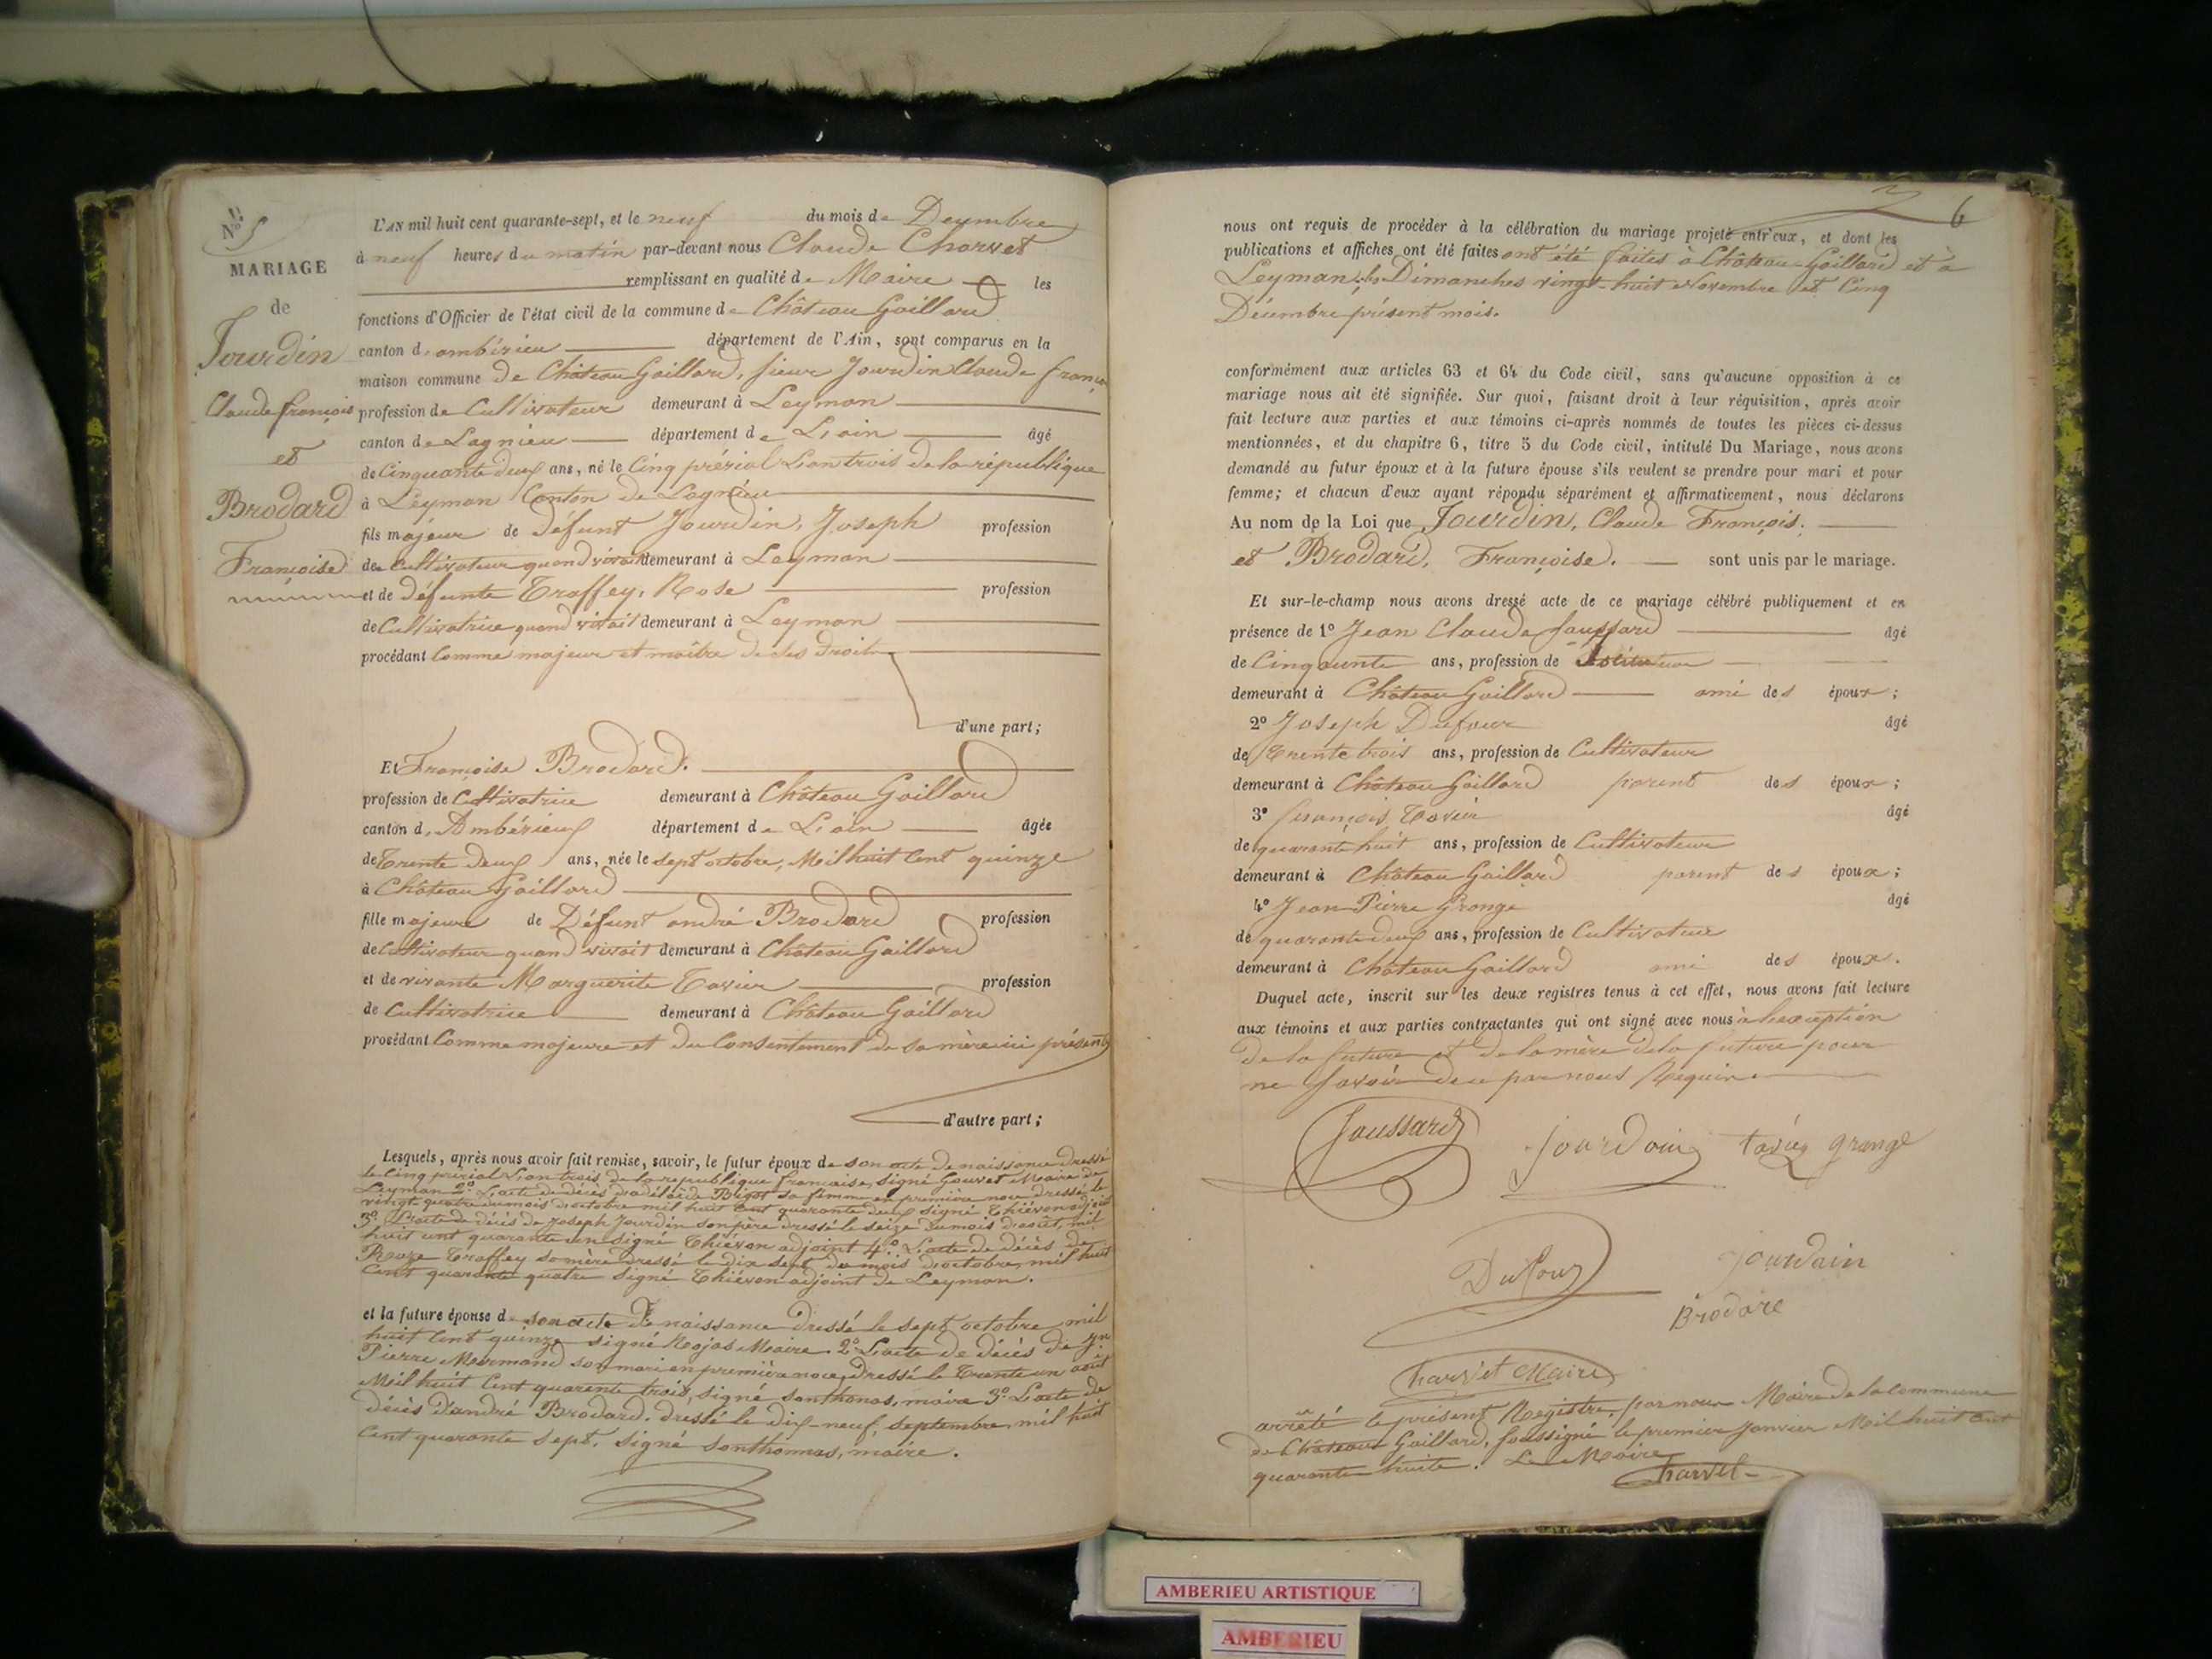 N° 5
MARIAGE
de
Jourdin
Claude françois
et
Brodard
Françoise
L'AN mil huit cent quarante-sept, et le neuf du mois de Decembre
à neuf heures du matin par-devant nous Claude Charvet
remplissant en qualité de Maire les
fonctions d'Officier de l'état civil de la commune de Château Gaillard
canton d'ambérieu département de l'Ain, sont comparus en la
maison commune de Château Gaillard, sieur Jourdin Claude françois
profession de Cultivateur demeurant à Leyman
canton de Lagnieu département de L'ain âgé
de Cinquante deux ans, né le Cinq prérial L'an trois de la république
à Leyman Canton de Lagnieu
fils majeur de défunt Jourdin, Joseph profession
de Cultivateur quand vivait demeurant à Leyman
et de défunte Traffey, Rose profession
de Cultivatrice quand vivait demeurant à Leyman
procédant Comme majeur et maître de ses droits
d'une part;
Et Françoise Brodard.
profession de Cultivatrice demeurant à Château Gaillard
canton d'Ambérieux département de L'ain âgée
de Trente deux ans, née le sept octobre, Mil huit Cent quinze
à Château Gaillard
fille majeure de Défunt andré Brodard profession
de Cultivateur quand vivait demeurant à Château Gaillard
et de vivante Marguerite Tavier profession
de Cultivatrice demeurant à Château Gaillard
procédant Comme majeure et du Consentement de sa mère ici présente
d'autre part;
Lesquels, après nous avoir fait remise, savoir, le futur époux de son acte de naissance dressé
le Cinq prérial L'an trois de la republique francaise, signé Gouvet Maire de
Leyman 2° L'acte de décès d'adélaïde Bigot sa femme en première noce dressé le
vingt-quatre du mois d'octobre mil huit Cent quarante deux signé Thiévon adjoint
3° L'acte de décès de Joseph Jourdin son père dressé le seize du mois d'août, mil
huit cent quarante un signé Thiévon adjoint 4° L'acte de décès de
Roze Traffey sa mère dressé le dix sept du mois d'octobre, mil huit
Cent quarante quatre signé Thiévon adjoint de Leyman.
et la future épouse de son acte de naissance dressé le sept octobre mil
huit Cent quinze signé Rojas Maire. 2° L'acte de décès de Jn
Pierre Marmand son mari en première noce, dressé le Trente un août
Mil huit Cent quarente trois, signé Santhonas, maire 3° L'acte de
décès d'andré Brodard. dressé le dix-neuf, septembre, mil huit
Cent quarante sept, signé Santhonnas, maire.
6
nous ont requis de procéder à la célébration du mariage projeté entr'eux, et dont les
publications et affiches ont été faites ont été faites à Château-Gaillard et à
Leyman, les Dimanches vingt-huit Novembre et Cinq
Décembre présent mois.
conformément aux articles 63 et 64 du Code civil, sans qu'aucune opposition à ce
mariage nous ait été signifiée. Sur quoi, faisant droit à leur réquisition, après avoir
fait lecture aux parties et aux témoins ci-après nommés de toutes les pièces ci-dessus
mentionnées, et du chapitre 6, titre 5 du Code civil, intitulé Du Mariage, nous avons
demandé au futur époux et à la future épouse s'ils veulent se prendre pour mari et pour
femme; et chacun d'eux ayant répondu séparément et affirmativement, nous déclarons
Au nom de la Loi que Jourdin, Claude François.
et Brodard, Françoise. sont unis par le mariage.
Et sur-le-champ nous avons dressé acte de ce mariage célébré publiquement et en
présence de 1° Jean Claude Jaussard âgé
de Cinquante ans, profession de
demeurant à Château Gaillard ami des époux;
2° Joseph Dufour âgé
de Trente trois ans, profession de Cultivateur
demeurant à Château Gaillard parent des époux;
3° François Tavier âgé
de quarante huit ans, profession de Cultivateur
demeurant à Château Gaillard parent des époux;
4° Jean Pierre Grange âgé
de quarante deux ans, profession de Cultivateur
demeurant à Château Gaillard ami des époux.
Duquel acte, inscrit sur les deux registres tenus à cet effet, nous avons fait lecture
aux témoins et aux parties contractantes qui ont signé avec nous à l'exception
de la future et de la mère de la future pour
ne savoir de ce par nous Requise
Jaussard Jourdain tavier grange
Dufour Jourdain
Brodard
Charvet Maire
arrêté le présent Registre, par nous Maire de la Commune
de Château Gaillard, soussigné le premier janvier Mil huit Cent
quarante huite. Le Maire
Charvet
AMBERIEU ARTISTIQUE
AMBERIEU